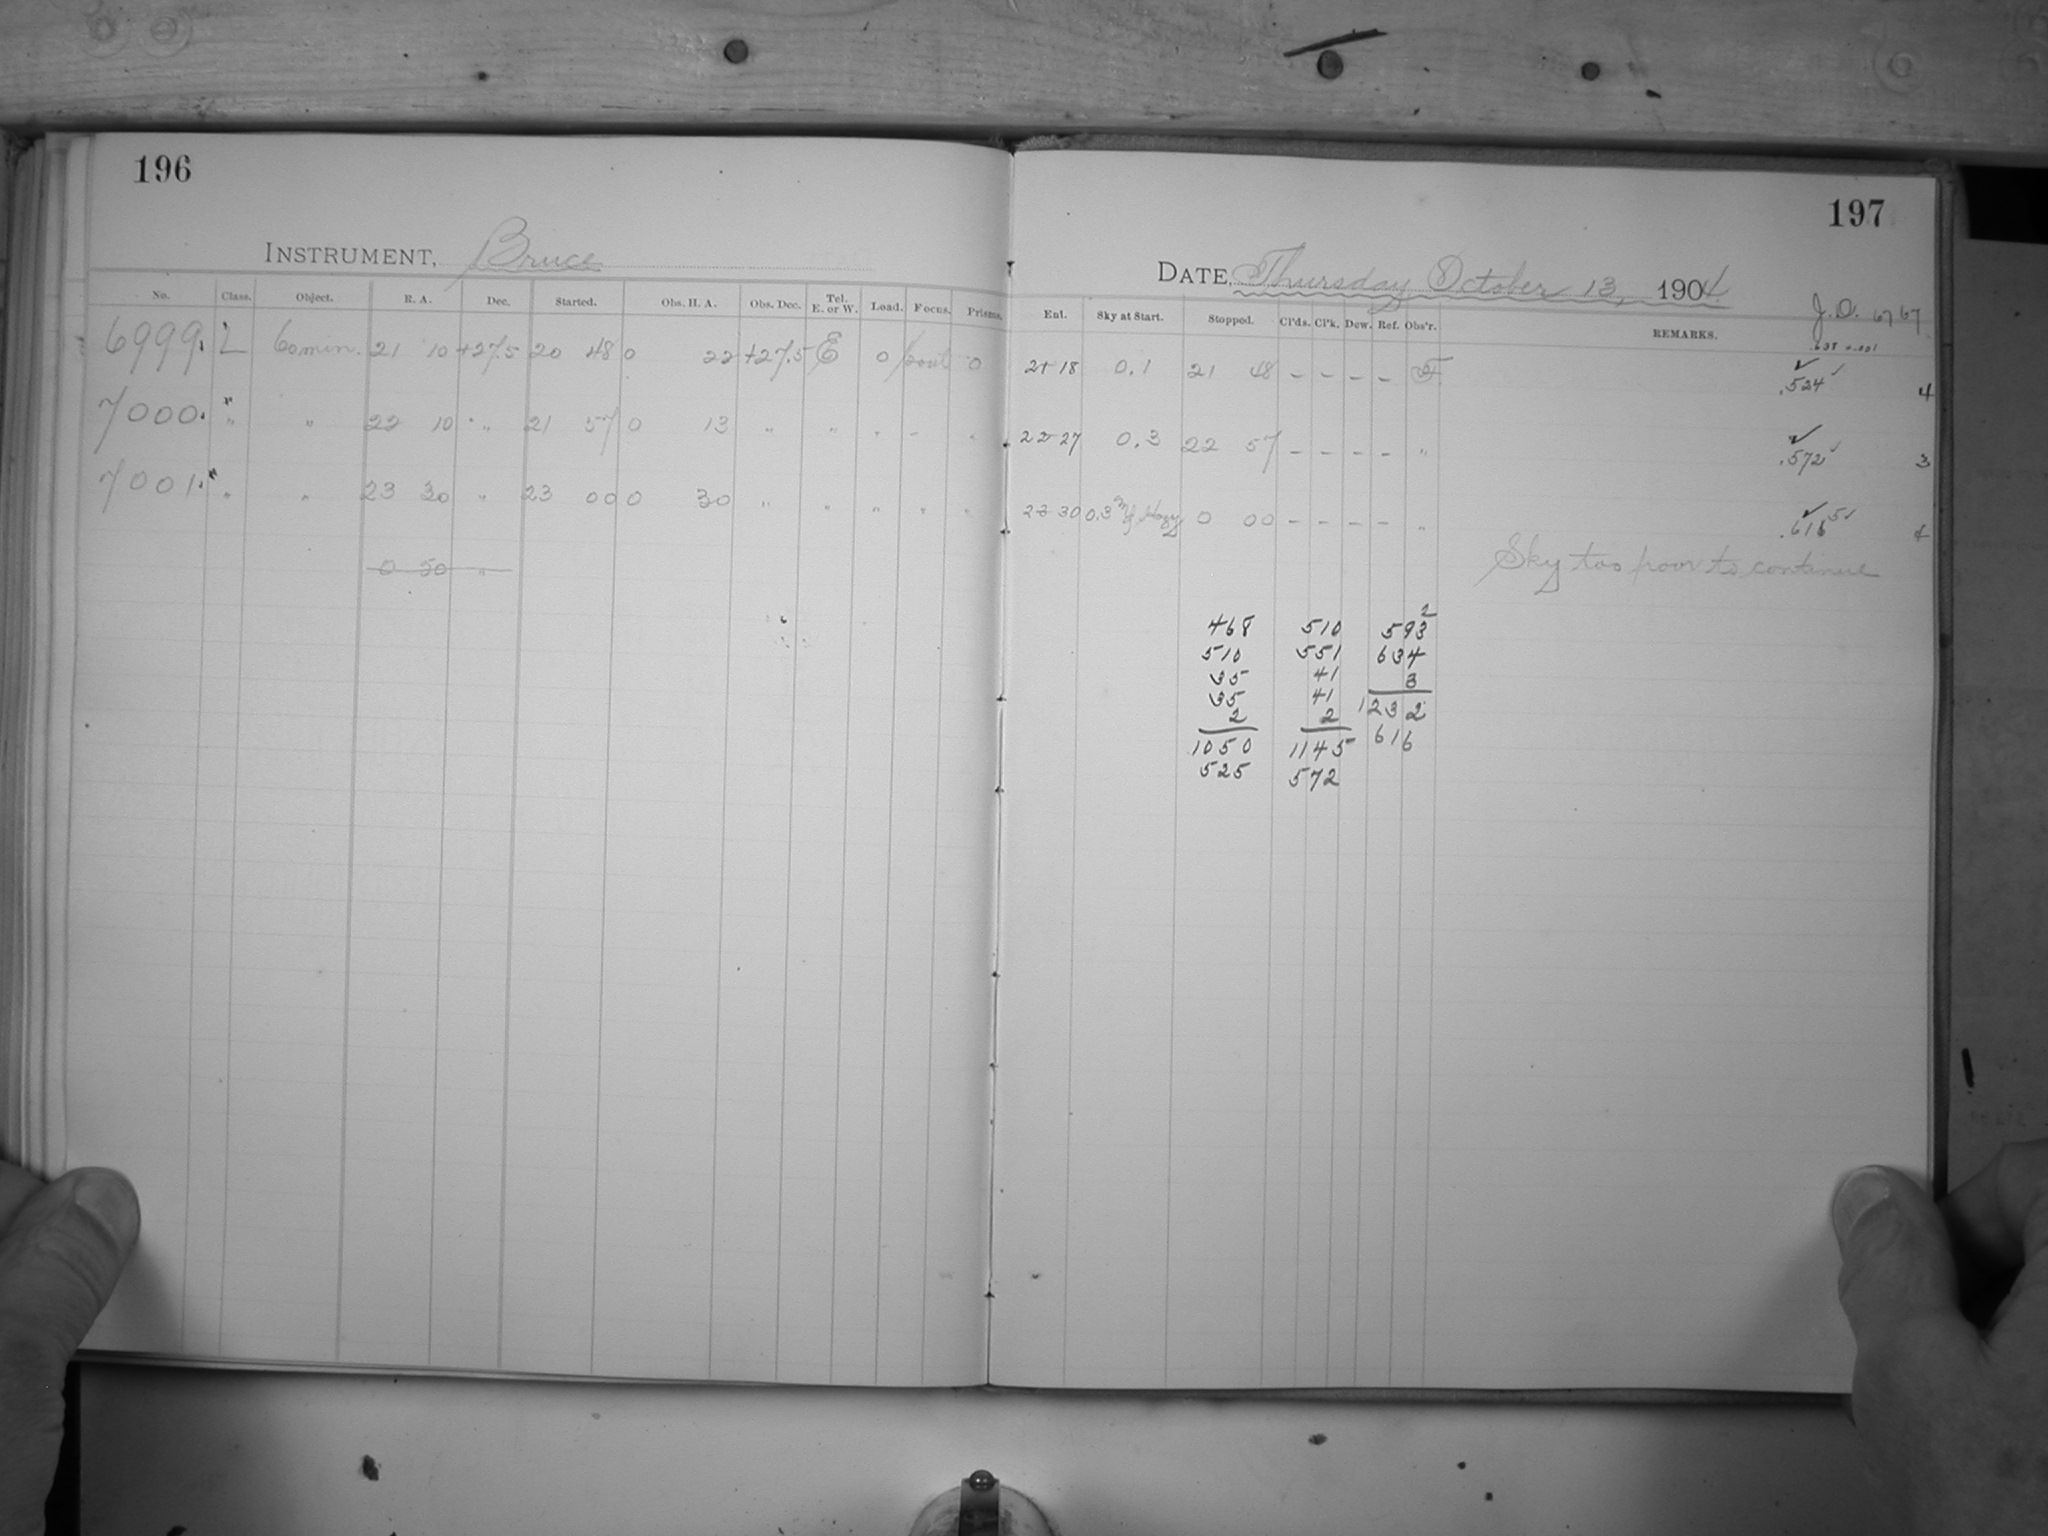 196
INSTRUMENT, Bruce
No. Class. Object. R. A. Dec. Started. Obs. H. A. Obs. Dec. Tel. E. or W. Load. Focus. Prisms.
6999. L 60 min. 21 10 +27.5 20 48 0 22 +27.5 E 0 0
7000. " " 22 10 " 21 57 0 13 " " " - "
7001. " " 23 30 " 23 00 0 30 " " " " "
0 50 "
197
DATE, Thursday October 13, 1904
J.D. 6767
Ent. Sky at Start. Stopped. Cl'ds. Cl'k. Dew. Ref. Obs'r. REMARKS.
.638 +.001
21 18 0.1 21 48 - - - - .524 4
22 27 0.3 22 57 - - - - " .572 3
23 30 0.3 Hazy 0 00 - - - - " .616 5
Sky too poor to continue
468 510 593 2
510 551 634
35 41 3
35 41 1232
2 2 616
1050 1145
525 572